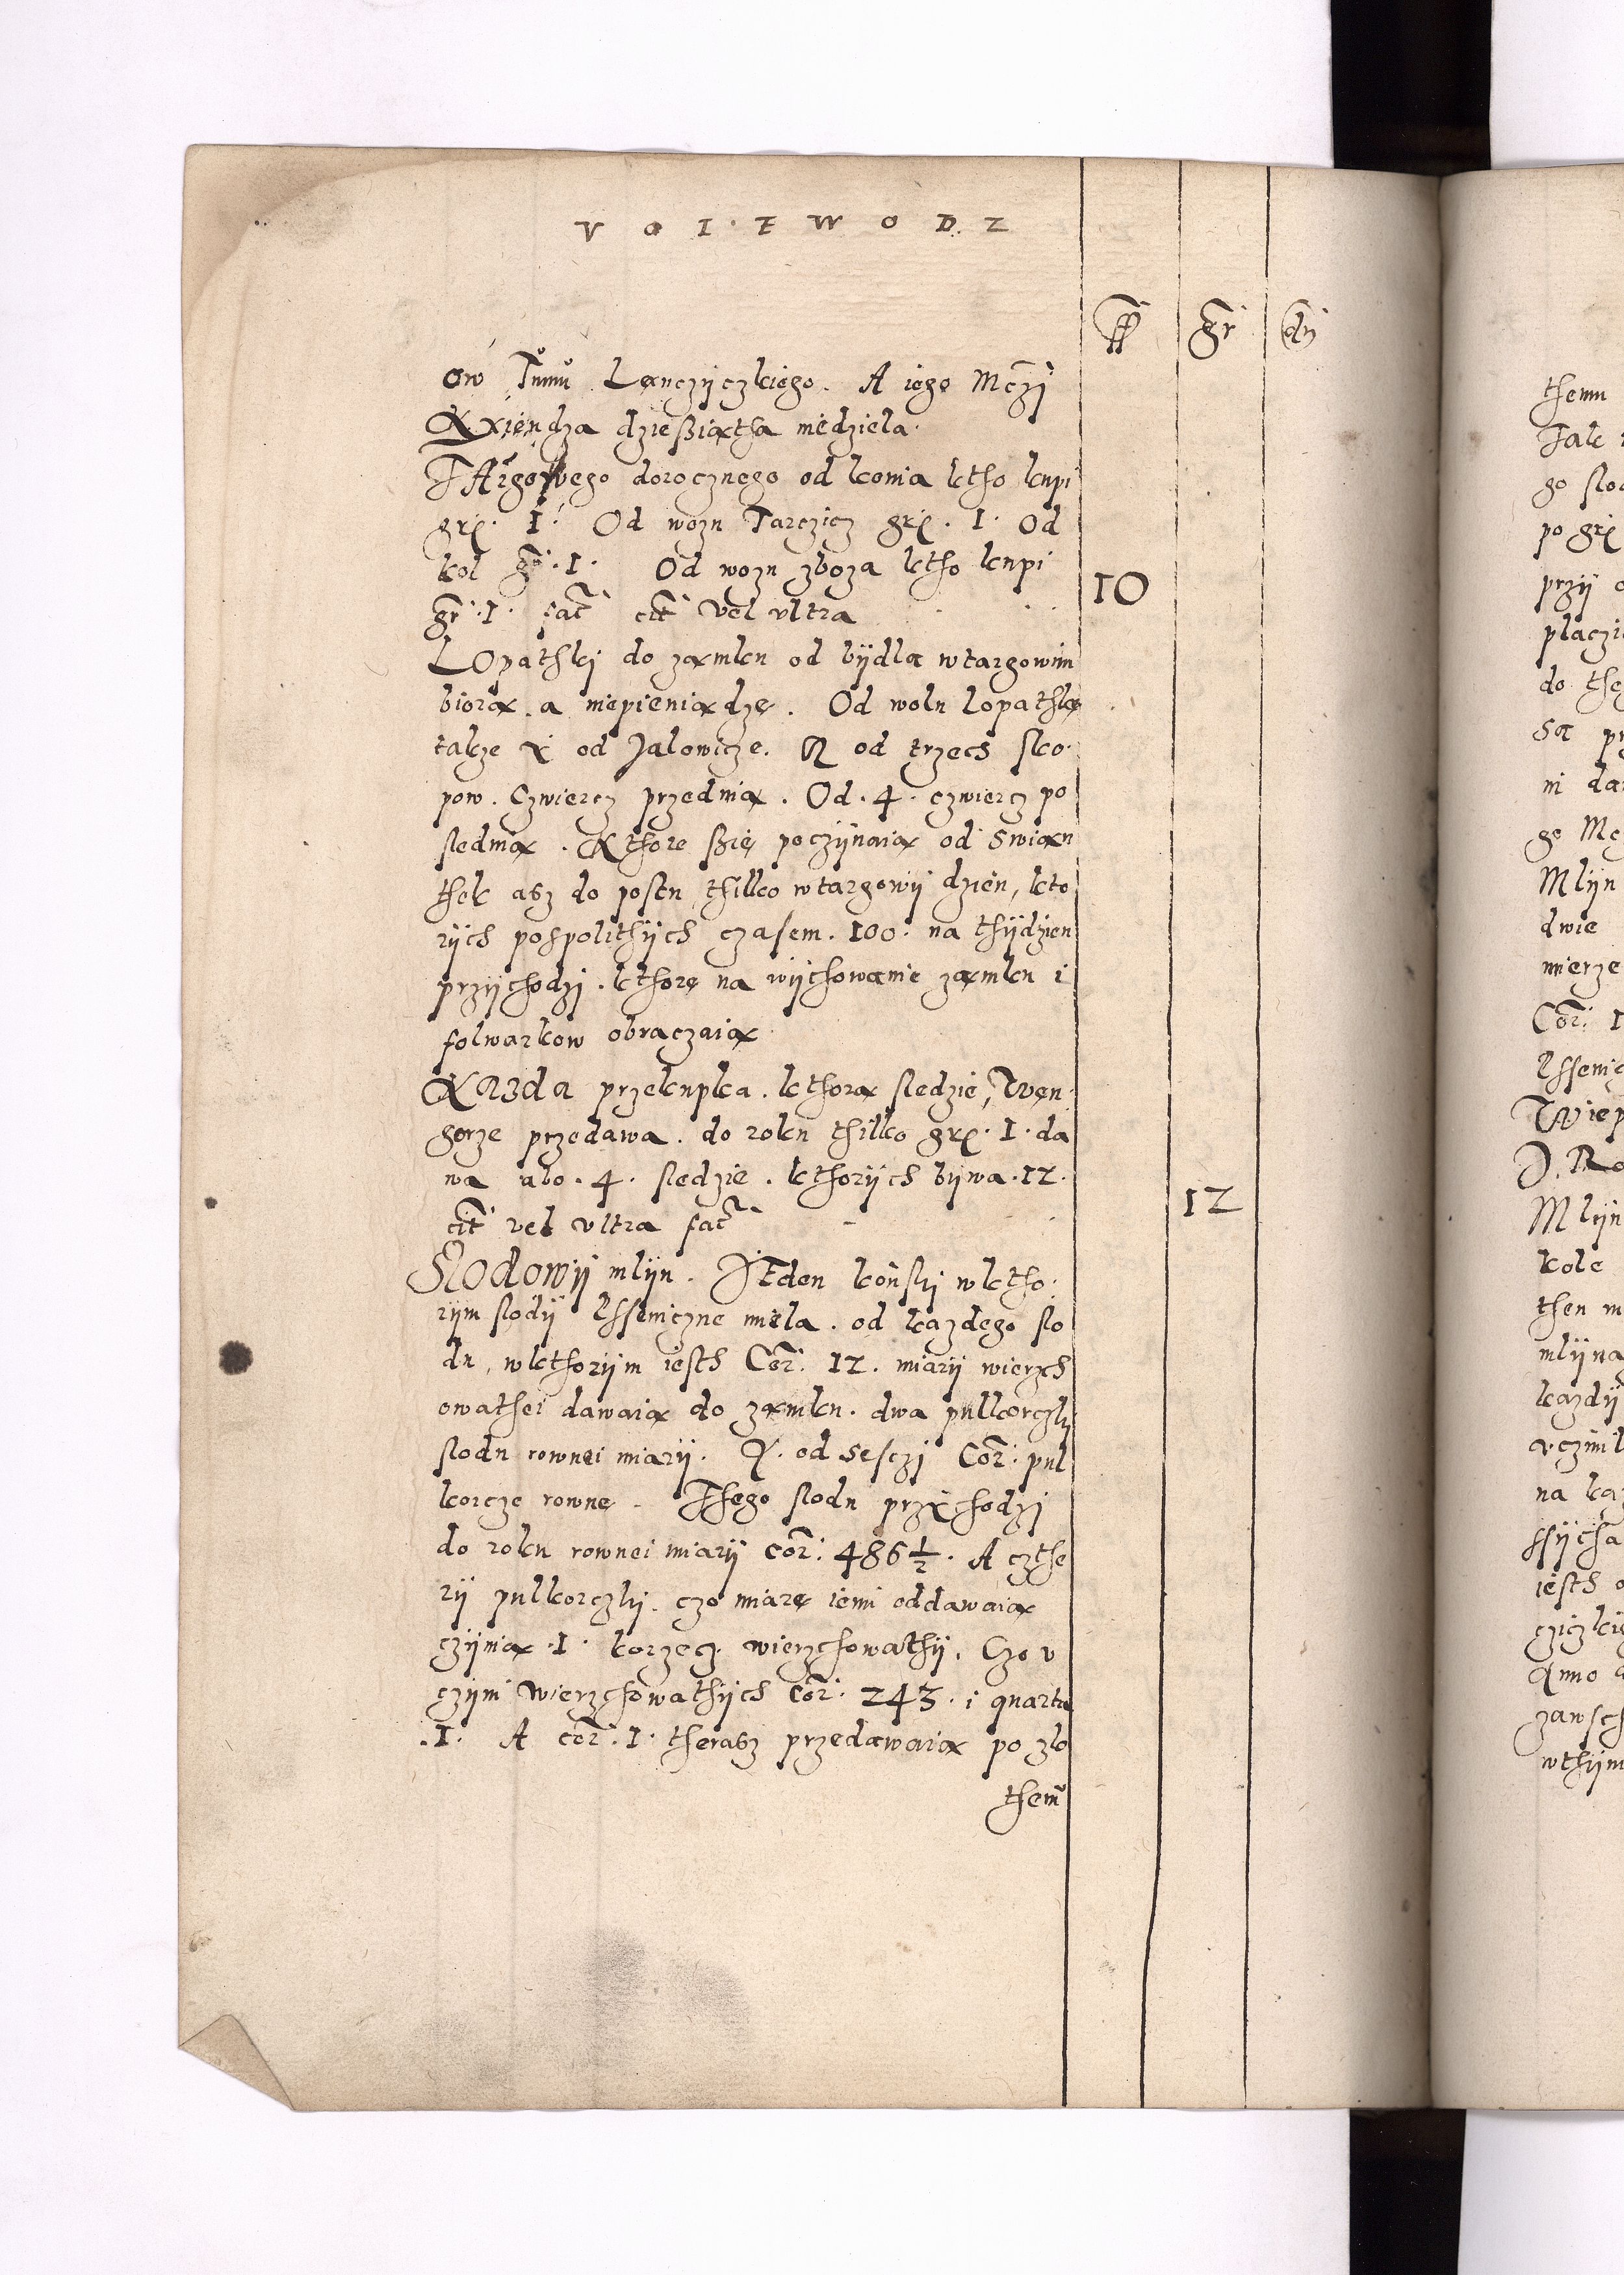 V O I E W O D Z
ff gr dn
ow Tumu Lęnczyczkiego. A iego Mczi
Xxiendza dzießiątha niedziela.
TArgowego dorocznego od konia ktho kupi
grǫ. I. Od wozu Tarczicz grǫ. I. Od
kol gr. I. Od wozu zboza ktho kupi
gr. I. fact cit vel vltra 10
LOpathki do zamku od bydła wtargowim
biorą. a niepieniądze. Od wolu lopathkę
takze y od Jalowicze. A od trzech sko
pow. Czwiercz przednią. Od. 4. czwiercz po
slednią. Kthore ßię poczynaią od Swiąn
thek asz do postu, thilko wtargowy dzień, kto
rych pospolithych czasem. 100. na thydzien
przychodzi. kthore na wychowanie zamku i
folwarkow obraczaią
KAzda przekupka. kthora sledzie, Wen
gorze przedawa. do roku thilko grǫ. I. da
wa abo. 4. sledzie. kthorych bywa. 12.
cit vel vltra fact 12
Slodowy mlyn. JEden konski w ktho
rym slody Psseniczne miela. od kazdego slo
du, wkthorym iesth Cor: 12. miary wierzch
owathei dawaią do zamku. dwa pulkorczky
slodu rownei miary. Y. od sesczi Cor: pul
korcze rowne. Thego slodu przychodzi
do roku rownei miary cor: 486 1/2. A czthe
ry pulkorczky. czo miarę iemi oddawaią
czynią. I. korzecz wierzchowathy. Czo v
czyni wierzchowathych cor: 243. i quarta
.I. A cor: I. therasz przedawaią po zlo
them
themu
po grǫ
przy
do
Mlyn
dwie
mierze
Cor: I
Mlyn
kole
then
mlyna
kazdy
na
iesth
Anno